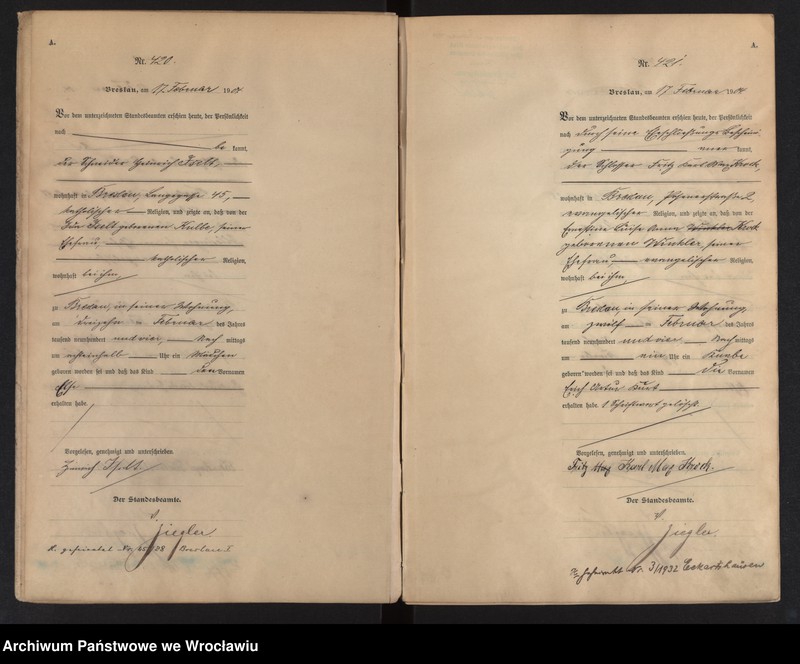 A.
Nr. 420.
Breslau, am 17. Februar 1904
Vor dem unterzeichneten Standesbeamten erschien heute, der Persönlichkeit
nach
be kannt,
der Schneider Heinrich
wohnhaft in Breslau, Langegasse 45,
katholischer Religion, und zeigte an, daß von der
geborenen seiner
Ehefrau,
katholischer Religion,
wohnhaft bei ihm,
zu Breslau, in seiner Wohnung,
am dreizehn ten Februar des Jahres
tausend neunhundert und vier, Nach mittags
um Uhr ein Mädchen
geboren worden sei und daß das Kind den Vornamen
Else
erhalten habe.
Vorgelesen, genehmigt und unterschrieben
Heinrich
Der Standesbeamte.
Ziegler.
K. geheiratet Nr. Breslau I
A.
Nr. 421.
Breslau, am 17. Februar 1904
Vor dem unterzeichneten Standesbeamten erschien heute, der Persönlichkeit
nach durch seine Eheschließungs Beschei-
nigung aner kannt,
der Schlosser Fritz Karl Max
wohnhaft in Breslau,
evangelischer Religion, und zeigte an, daß von der
Ernestine Luise Anna Winkler
geborenen Winkler, seiner
Ehefrau evangelischer Religion,
wohnhaft bei ihm,
zu Breslau in seiner Wohnung,
am zwölf ten Februar des Jahres
tausend neunhundert und vier Nach mittags
um ein Uhr ein Knabe
geboren worden sei und daß das Kind die Vornamen
Erich Artur Kurt
erhalten habe. 1 Schriftwort gelöscht.
Vorgelesen, genehmigt und unterschrieben
Fritz Max Karl Max
Der Standesbeamte.
Ziegler.
geheiratet Nr. 3/1932 Eckartshausen
Archiwum Państwowe we Wrocławiu